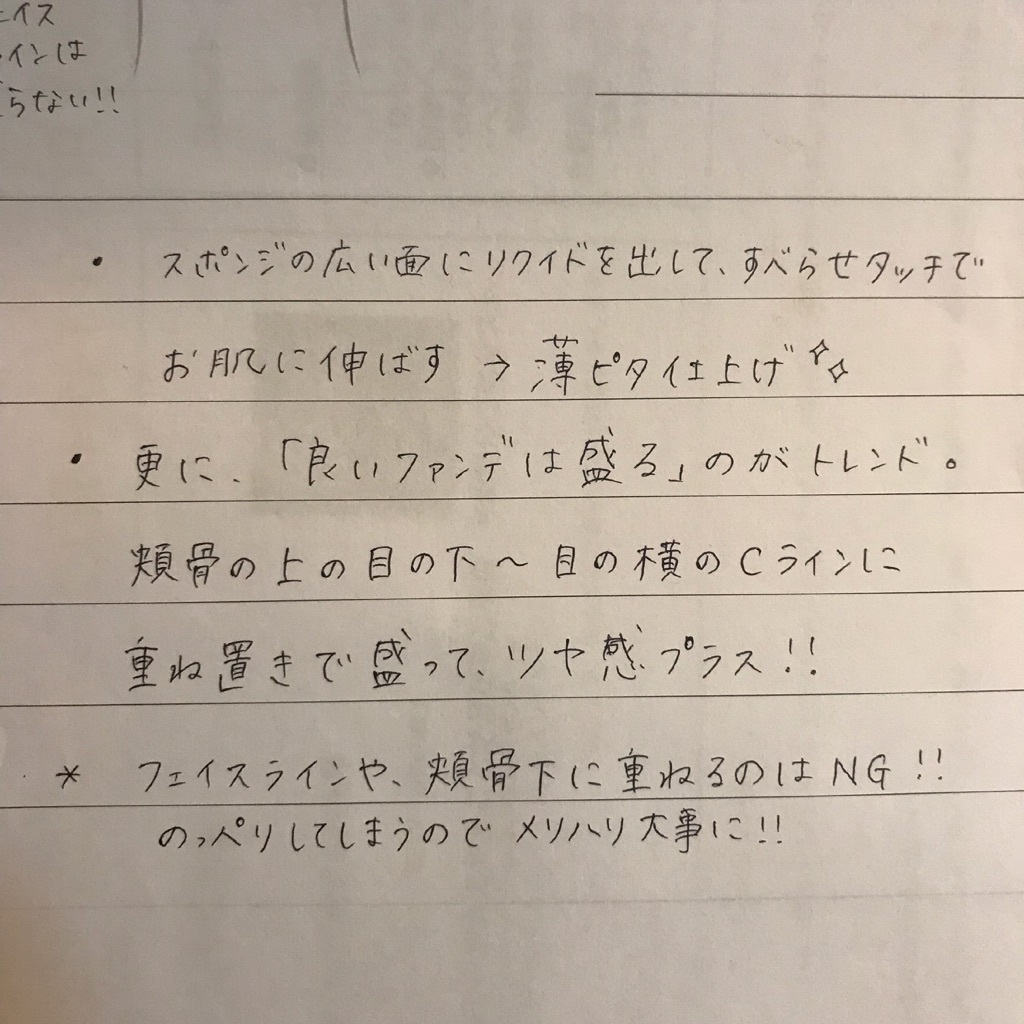 ェイス
インは
らない!!
・ スポンジの広い面にリクイドを出して、すべらせタッチで
お肌に伸ばす → 薄ピタ仕上げ✧✧
・ 更に、「良いファンデは盛る」のがトレンド。
頬骨の上の目の下〜目の横のCラインに
重ね置きで盛って、ツヤ感プラス!!
* フェイスラインや、頬骨下に重ねるのはNG!!
のっぺりしてしまうのでメリハリ大事に!!